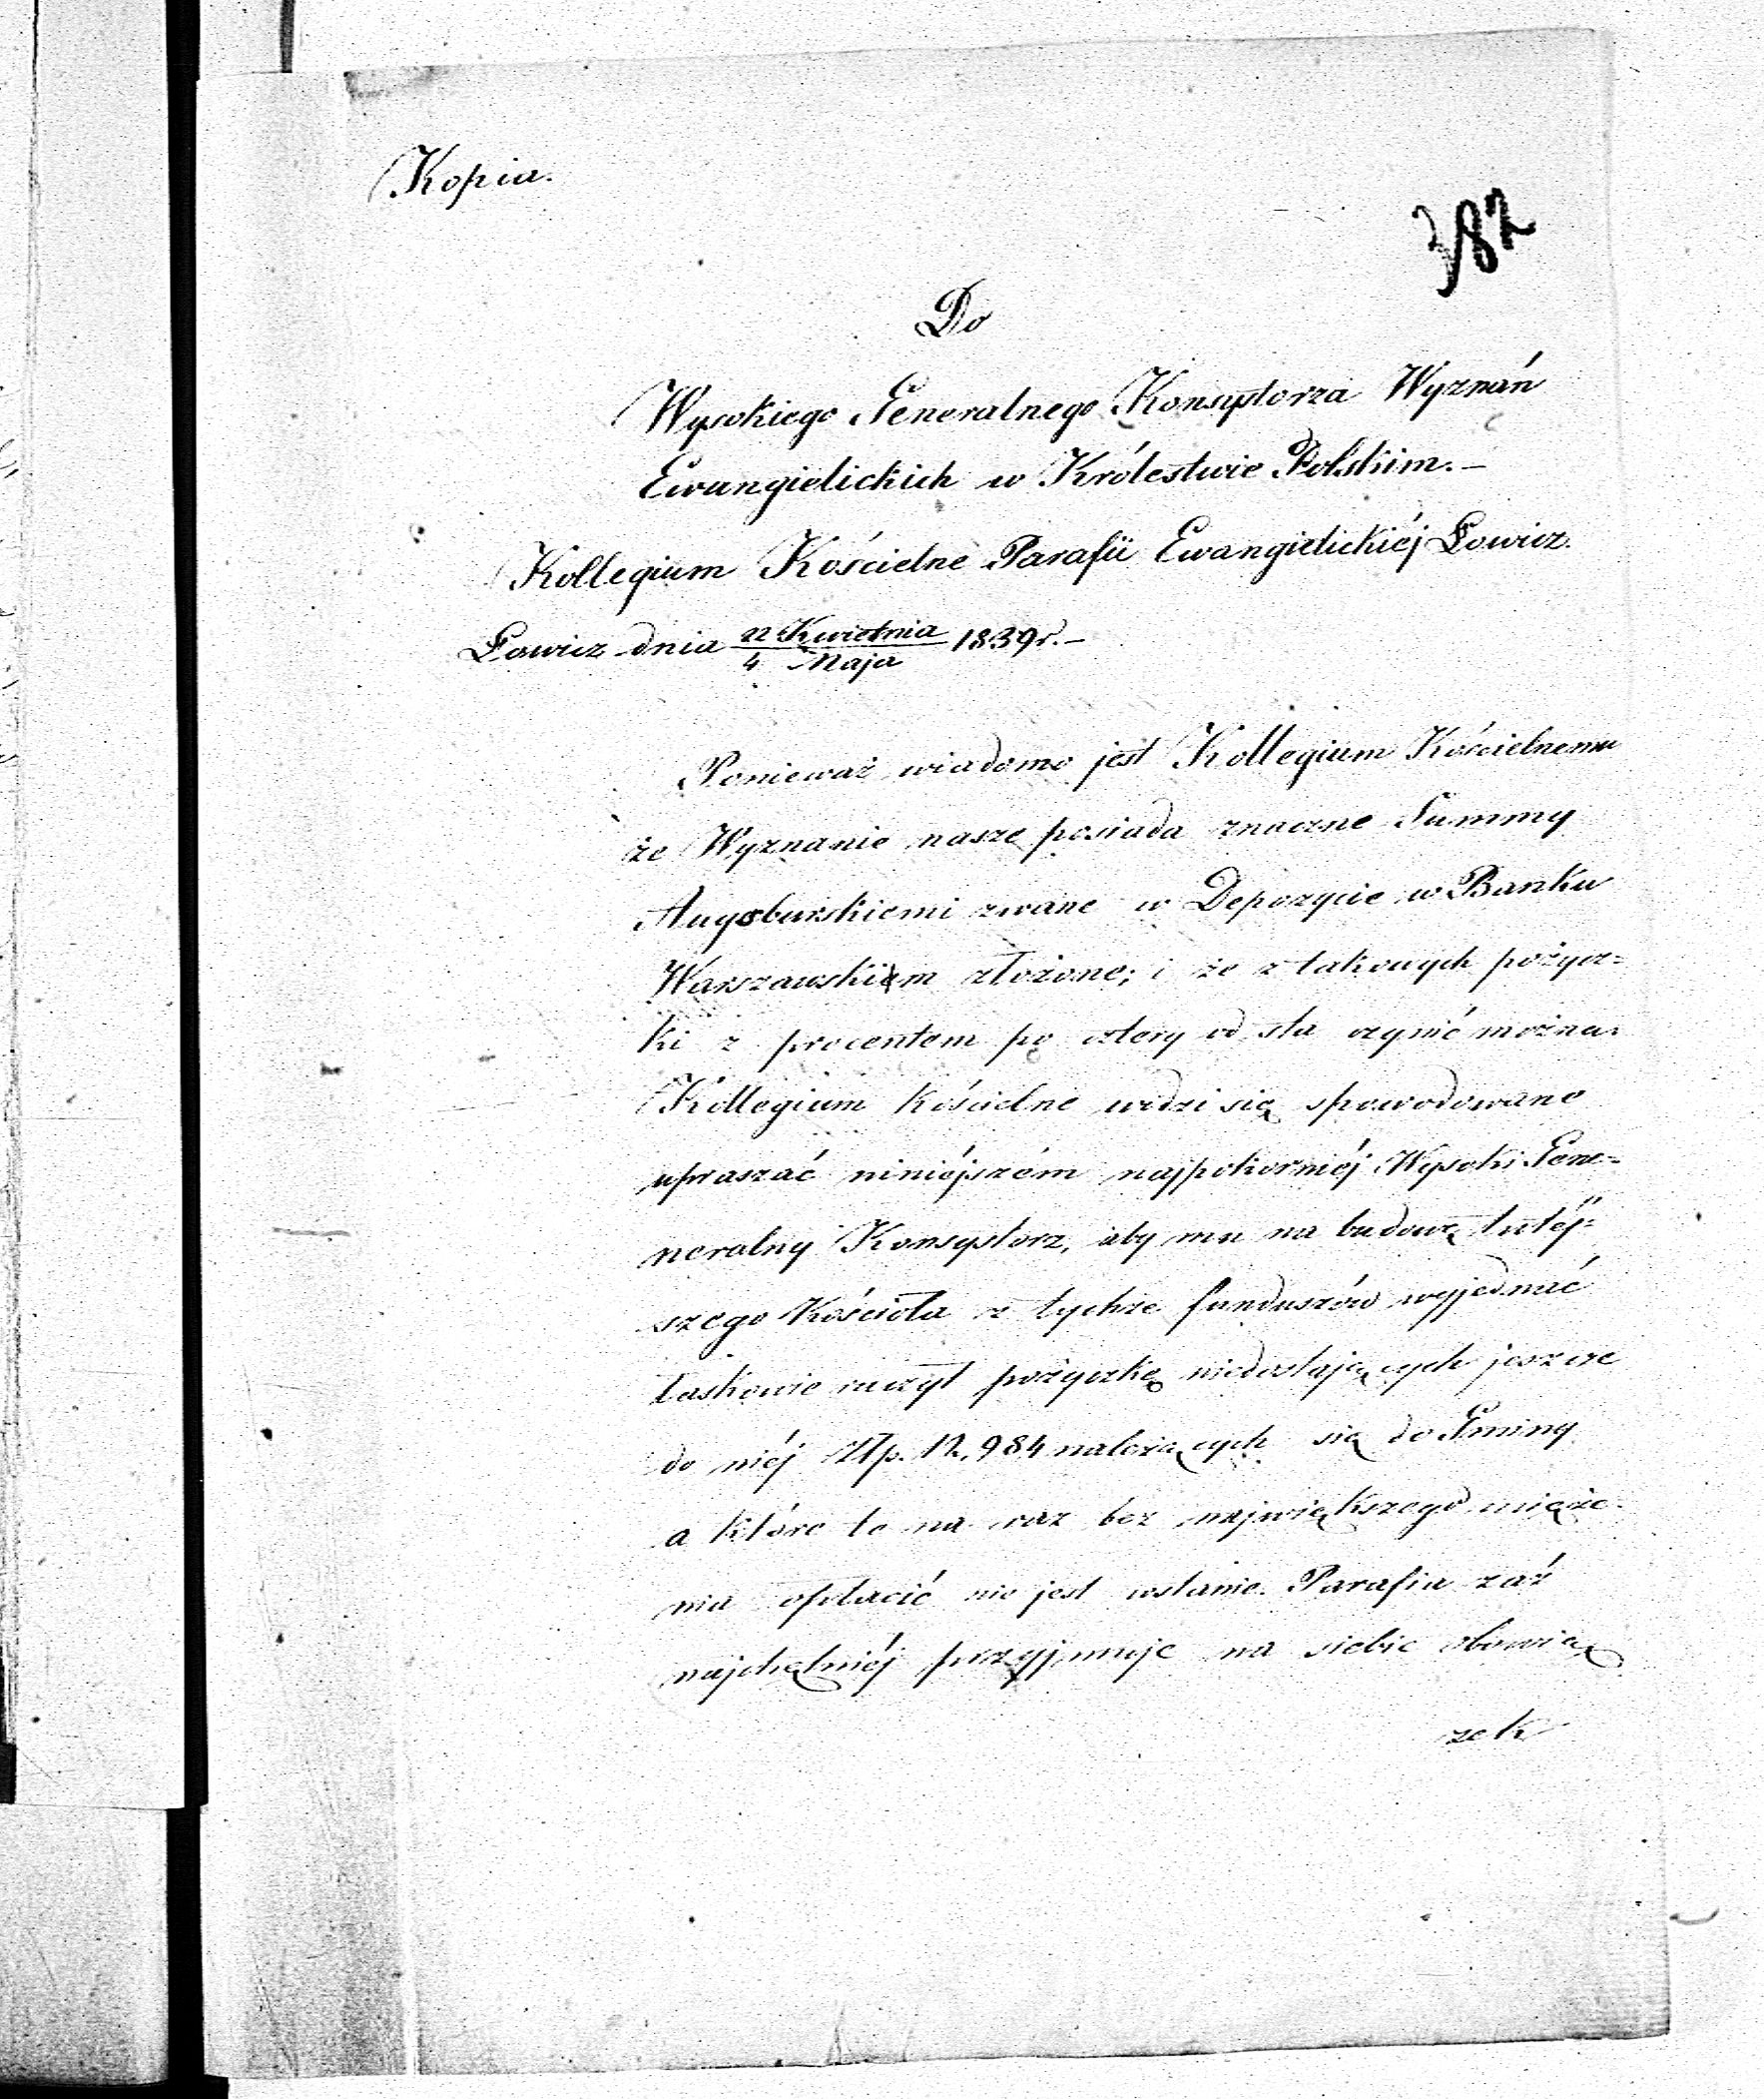 Kopia.
382
Do
Wysokiego Generalnego Konsystorza Wyznań
Ewangielickich w Królestwie Polskim.—
Kollegium Kościelne Parafii Ewangielickiéj Łowicz.
Łowicz dnia 22 Kwietnia / 4 Maja 1839 r.—
Ponieważ wiadomo jest Kollegium Kościelnemu
że Wyznanie nasze posiada znaczne Summy
Augsburskiemi zwane w Depozycie w Banku
Warszawskiem złożone; i że z takowych pożycz=
ki z procentem po cztery od sta czynić można.
Kollegium Kościelne widzi się spowodowane
upraszać niniéjszém najpokorniéj Wysoki Gene=
neralny Konsystorz, aby mu na budowę tutéj=
szego Kościoła z tychże funduszów wyjednać
łaskawie raczył pożyczkę niedostających jeszcze
do niéj Złp. 12,984 należących się do Gminy
a które to na raz bez największego uciąże
nia opłacić nie jest wstanie. Parafia zaś
najchętniéj przyjmuje na siebie obowią
zek